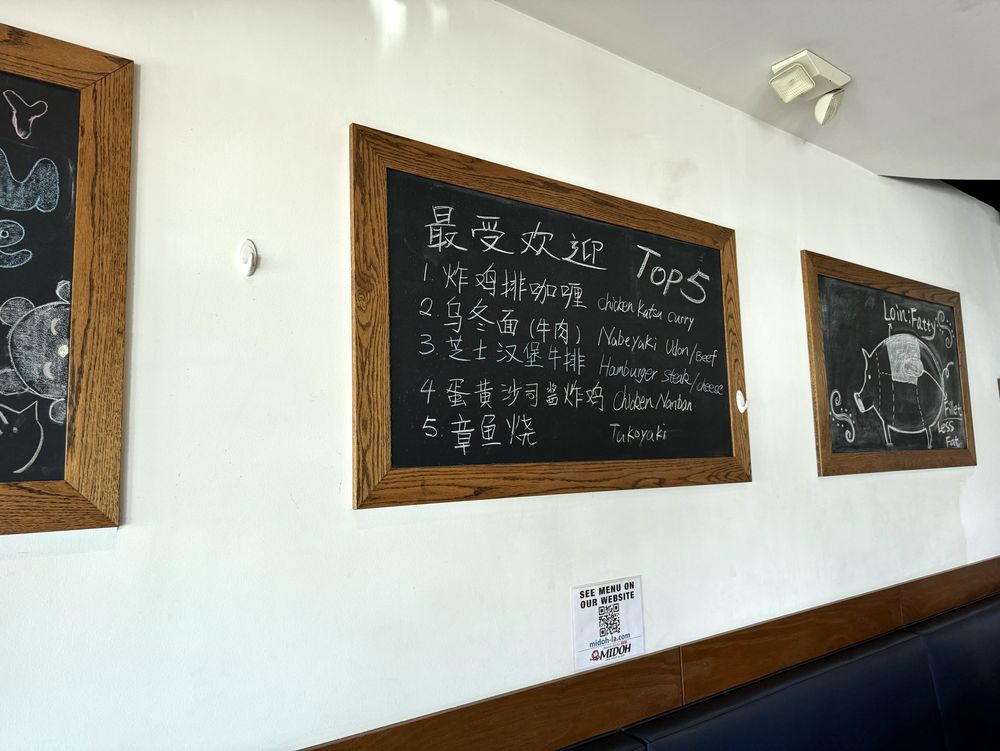 Y
u
e
最受欢迎 TOP5
1. 炸鸡排咖喱 chicken katsu curry
2. 乌冬面(牛肉) Nabeyaki Udon/Beef
3. 芝士汉堡牛排 Hamburger steak/cheese
4 蛋黄沙司酱炸鸡 Chicken Nanban
5. 章鱼烧 Takoyaki
Loin:Fatty
Fillet
Less
Fat
SEE MENU ON
OUR WEBSITE
midoh-la.com
MIDOH